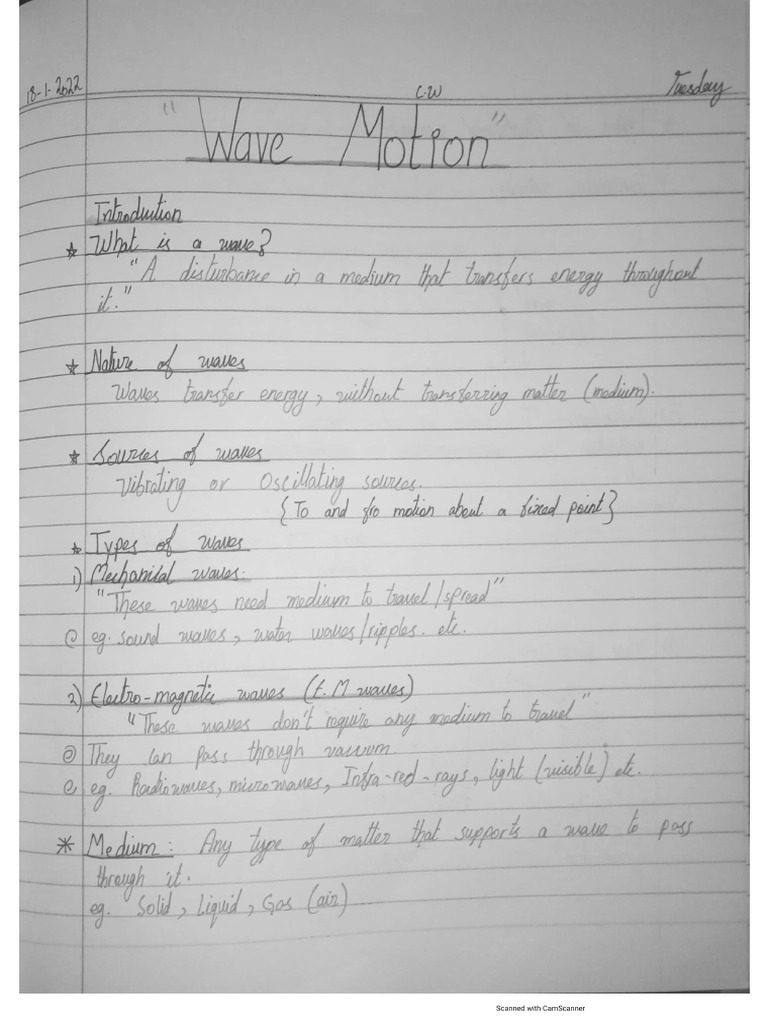 18-1-2022 C.W Tuesday
"Wave Motion"
Introduction
* What is a wave?
"A disturbance in a medium that transfers energy throughout
it."
* Nature of waves
Waves transfer energy, without transferring matter (medium).
* Sources of waves
Vibrating or Oscillating sources.
{To and fro motion about a fixed point}
* Types of waves
1) Mechanical waves:
"These waves need medium to travel/spread"
eg. sound waves, water waves/ripples. etc.
2) Electro-magnetic waves (E.M waves)
"These waves don't require any medium to travel"
They can pass through vacuum.
eg. Radiowaves, microwaves, Infra-red-rays, light (visible) etc.
* Medium: Any type of matter that supports a wave to pass
through it.
eg. Solid, Liquid, Gas (air)
Scanned with CamScanner